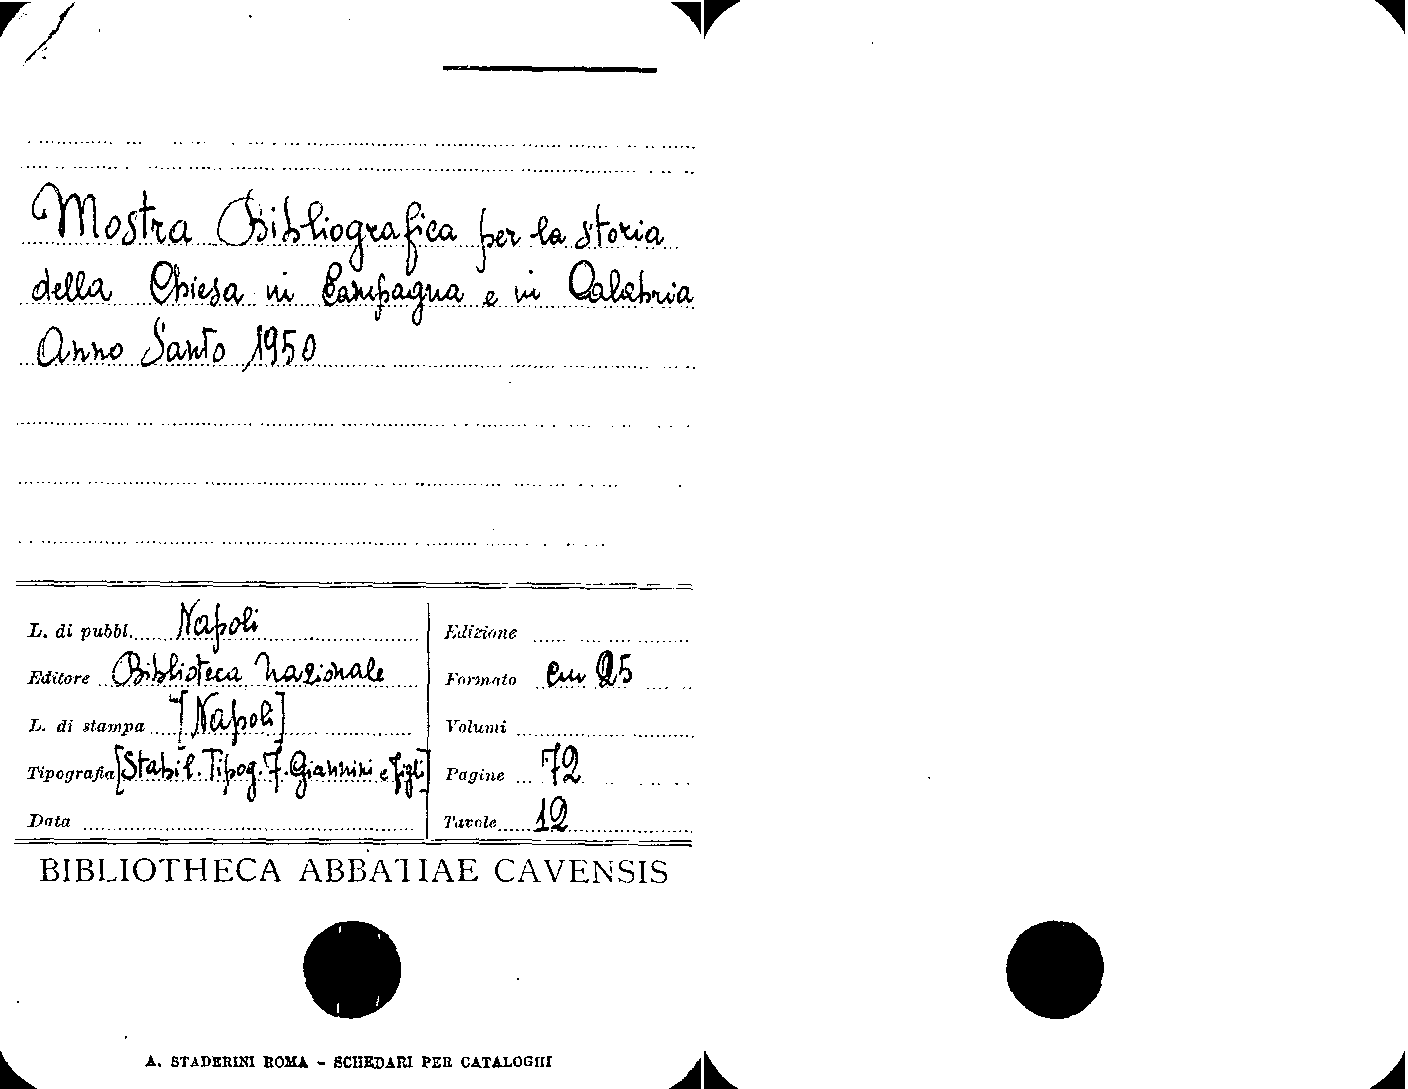 Mostra Bibliografica per la storia
della Chiesa in Campagna e in Calabria
Anno Santo 1950
L. di pubbl. Napoli
Edizione
Editore Biblioteca Nazionale
Formato cm 25
L. di stampa [Napoli]
Volumi
Tipografia [Stabil. Tipog. F. Giannini e figli]
Pagine 72
Data
Tavole 12
BIBLIOTHECA ABBATIAE CAVENSIS
A. STADERINI ROMA - SCHEDARI PER CATALOGHI